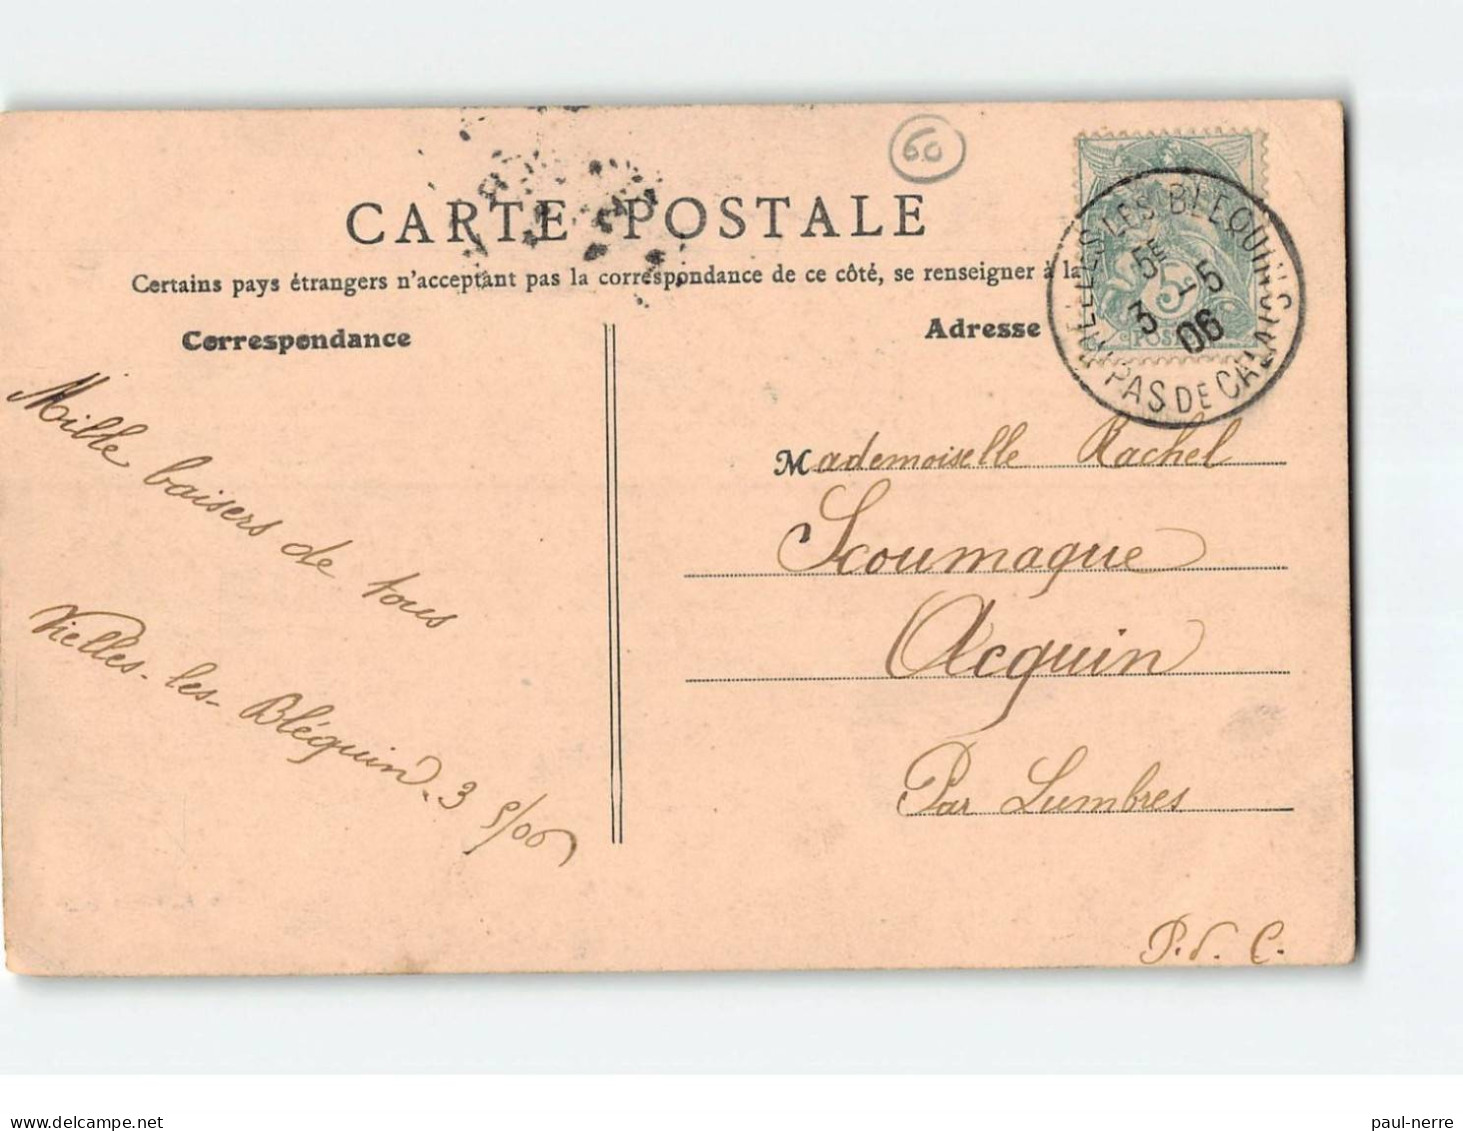 60
CARTE POSTALE
Certains pays étrangers n'acceptent pas la correspondance de ce côté, se renseigner à la
Correspondance
Adresse
VIELLES LES BLEQUINS
5E
3 -5
06
PAS DE CALAIS
5
POSTES
Mille baisers de tous
Vielles-les-Bléquin. 3 5/06
Mademoiselle Rachel
Scoumaque
Acquin
Par Lumbres
P. d. C.
www.delcampe.net
paul-nerre